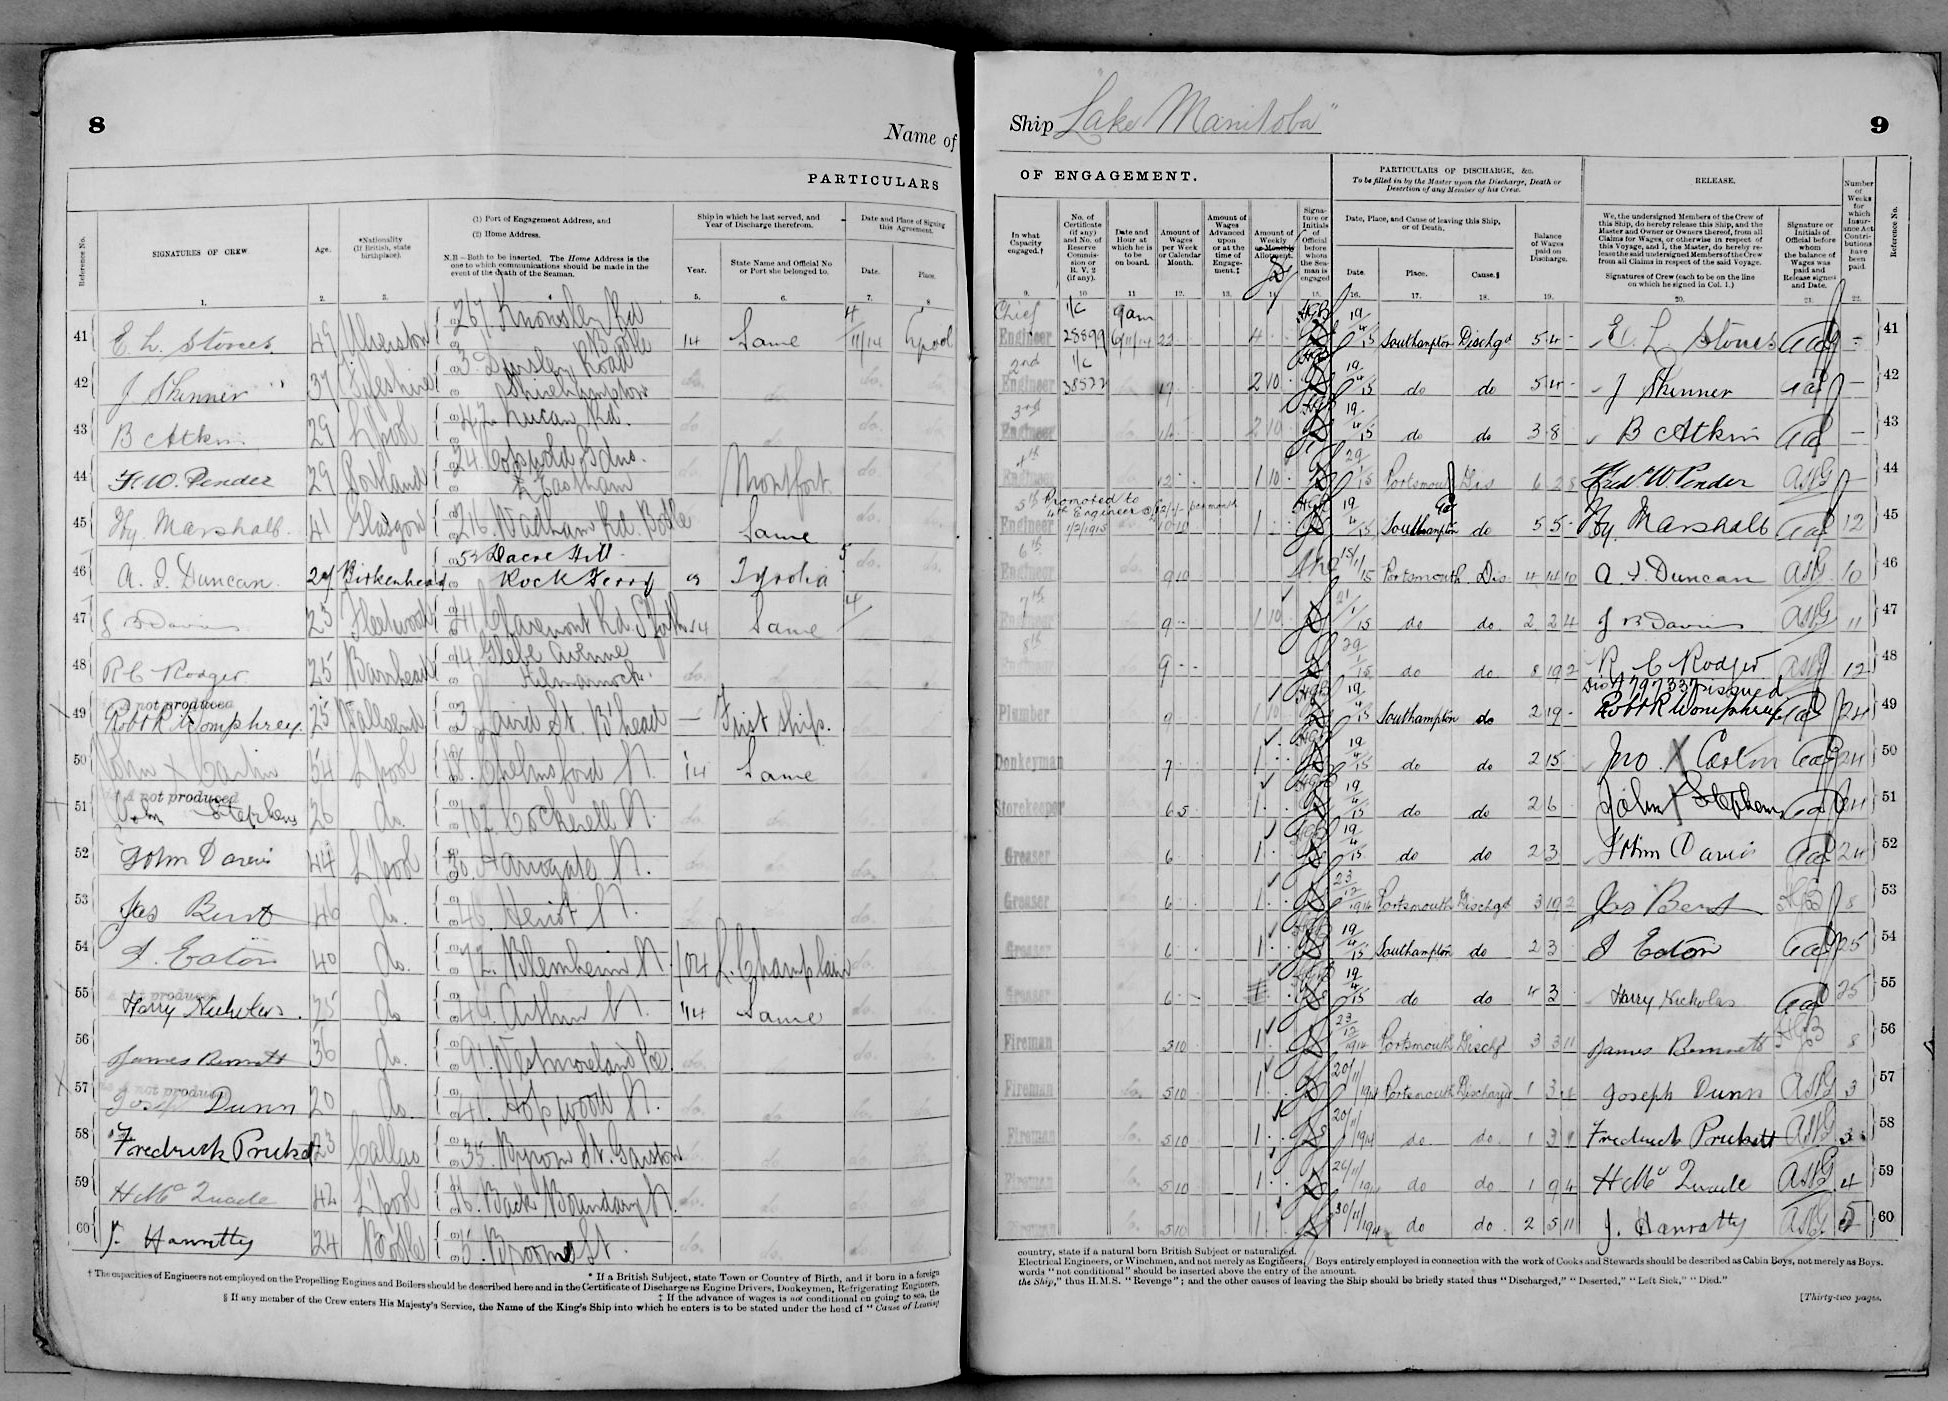 8
Name of
PARTICULARS
Reference No.
SIGNATURES OF CREW.
Age.
*Nationality (If British, state birthplace).
(1) Port of Engagement Address, and
(2) Home Address.
N.B.—Both to be inserted. The Home Address is the one to which communications should be made in the event of the death of the Seaman.
Ship in which he last served, and Year of Discharge therefrom.
Year.
State Name and Official No or Port she belonged to.
Date and Place of Signing this Agreement.
Date.
Place.
1. 2. 3. 4 5. 6. 7. 8
41 E. L. Stones 49 Ulverston 267 Knowsley Rd Bootle 14 Same 4/11/14 L'pool
42 J Skinner 37 Fifeshire 3 Road do. do. do.
43 B Atkin 29 L'pool 47 Lucan Rd. do. do. do.
44 F. W. Pender 29 Portland 24 Gdns. Montfort do. do.
45 Hy. Marshall 41 Glasgow 216 Wadham Rd. Bootle Same do. do.
46 A. J. Duncan 29 Birkenhead 52 Dacre Hill Rock Ferry Tyrolia 5 do. do.
47 J B Davies 25 Fleetwood 41 Claremont Rd. S'forth 14 Same 4/
48 R C Rodger 25 Barrhead 14 Glebe Avenue Kilmarnock do. do. do.
49 not produced Robt R Womphrey 25 Wallsend 3 Laird St. B'head — First Ship.
50 John X Carlin 54 L'pool Chelmsford St. '14 Same
51 not produced John Stephens 26 do. 107 Cockerell St. do.
52 John Davies 44 L'pool 30 Harrogate St.
53 Jas Bent 40 do. 46 Heriot St.
54 J. Eaton 40 do. 72 Blenheim St. 1904 L. Champlain
55 not produced Harry Nicholas 25 do 44 Arthur St. '14 Same
56 James Bennett 36 do. 91 Westmoreland Pce. do.
57 not produced Joseph Dunn 20 do. 41 Hopwood St. do. do.
58 Fredrick Prickett 23 Callao 35 Byrom St. Garston do. do.
59 H Mc Quade 42 L'pool 16 Back Boundary St. do.
60 J. Hanratty 24 Bootle 5 Broome St. do. do.
† The capacities of Engineers not employed on the Propelling Engines and Boilers should be described here and in the Certificate of Discharge as Engine Drivers, Donkeymen, Refrigerating Engineers,
* If a British Subject, state Town or Country of Birth, and if born in a foreign
‡ If the advance of wages is not conditional on going to sea, the
§ If any member of the Crew enters His Majesty's Service, the Name of the King's Ship into which he enters is to be stated under the head of "Cause of Leaving
Ship "Lake Manitoba"
9
OF ENGAGEMENT.
PARTICULARS OF DISCHARGE, &c.
To be filled in by the Master upon the Discharge, Death or Desertion of any Member of his Crew.
RELEASE.
In what Capacity engaged.†
No. of Certificate (if any) and No. of Reserve Commission or R. V. 2 (if any).
Date and Hour at which he is to be on board.
Amount of Wages per Week or Calendar Month.
Amount of Wages Advanced upon or at the time of Engagement.‡
Amount of Weekly or Monthly Allotment.
Signature or Initials of Official before whom the Seaman is engaged
Date, Place, and Cause of leaving this Ship, or of Death.
Date. Place. Cause.§
Balance of Wages paid on Discharge.
We, the undersigned Members of the Crew of this Ship, do hereby release this Ship, and the Master and Owner or Owners thereof, from all Claims for Wages, or otherwise in respect of this Voyage, and I, the Master, do hereby release the said undersigned Members of the Crew from all Claims in respect of the said Voyage.
Signatures of Crew (each to be on the line on which he signed in Col. 1.)
Signature or Initials of Official before whom the balance of Wages was paid and Release signed and Date.
Number of Weeks for which Insurance Act Contributions have been paid.
Reference No.
9. 10 11 12. 13. 14 15. 16. 17. 18. 19. 20. 21. 22.
Chief Engineer 1/c 28899 9am 6/11/14 22 4 19/4/15 Southampton Dischgd 54 - E. L. Stones — 41
2nd Engineer 1/c 38522 2 10 19/4/15 do do 54 - J Skinner — 42
3rd Engineer 2 10 19/4/15 do do 38 - B Atkin — 43
4th Engineer 12 1 10 29/1/15 Portsmouth Dis 6 2 8 Fred W. Pender — 44
5th Engineer Promoted to 4th Engineer @ £12/-/- per month 1/2/1915 10 10 1 19/4/15 Southampton do 55 - Hy. Marshall 12 45
6th Engineer 9 10 15/1/15 Portsmouth Dis 4 14 10 A. J. Duncan 10 46
7th Engineer 9 1 10 21/1/15 do do. 2 2 4 J B Davies 11 47
8th 9 29/1/15 do do. 8 19 2 R. C Rodger 12 48
Plumber 9 1 10 19/4/15 Southampton do 2 19 - Dis A 797337 issued Robt R Womphrey 24 49
Donkeyman 7 1 19/4/15 do do 2 15 Jno. X Carlin 24 50
Storekeeper 6 5 1 19/4/15 do do 2 6 John X Stephens 24 51
Greaser 6 1 19/4/15 do do 2 3 John Davies 24 52
Greaser 6 1 23/12/1914 Portsmouth Dischgd 3 19 2 Jas Bent 8 53
Greaser 6 1 19/4/15 Southampton do 2 3 J Eaton 25 54
Greaser 6 19/4/15 do do 4 3 Harry Nicholas 25 55
Fireman 5 10 1 23/12/1914 Portsmouth Dischgd 3 3 11 James Bennett 8 56
Fireman do. 5 10 1 20/11/1914 Portsmouth Discharged 1 3 Joseph Dunn 3 57
Fireman do. 5 10 1 20/11/1914 do do. 1 3 Fredrick Prickett 3 58
Fireman 5 10 1 26/11/1914 do do. 1 9 4 H Mc Quade 4 59
Fireman do. 5 10 1 30/11/1914 do do. 2 5 11 J. Hanratty 5 60
country, state if a natural born British Subject or naturalized.
Electrical Engineers, or Winchmen, and not merely as Engineers. Boys entirely employed in connection with the work of Cooks and Stewards should be described as Cabin Boys, not merely as Boys.
words "not conditional" should be inserted above the entry of the amount.
the Ship," thus H.M.S. "Revenge"; and the other causes of leaving the Ship should be briefly stated thus "Discharged," "Deserted," "Left Sick," "Died."
[Thirty-two pages.